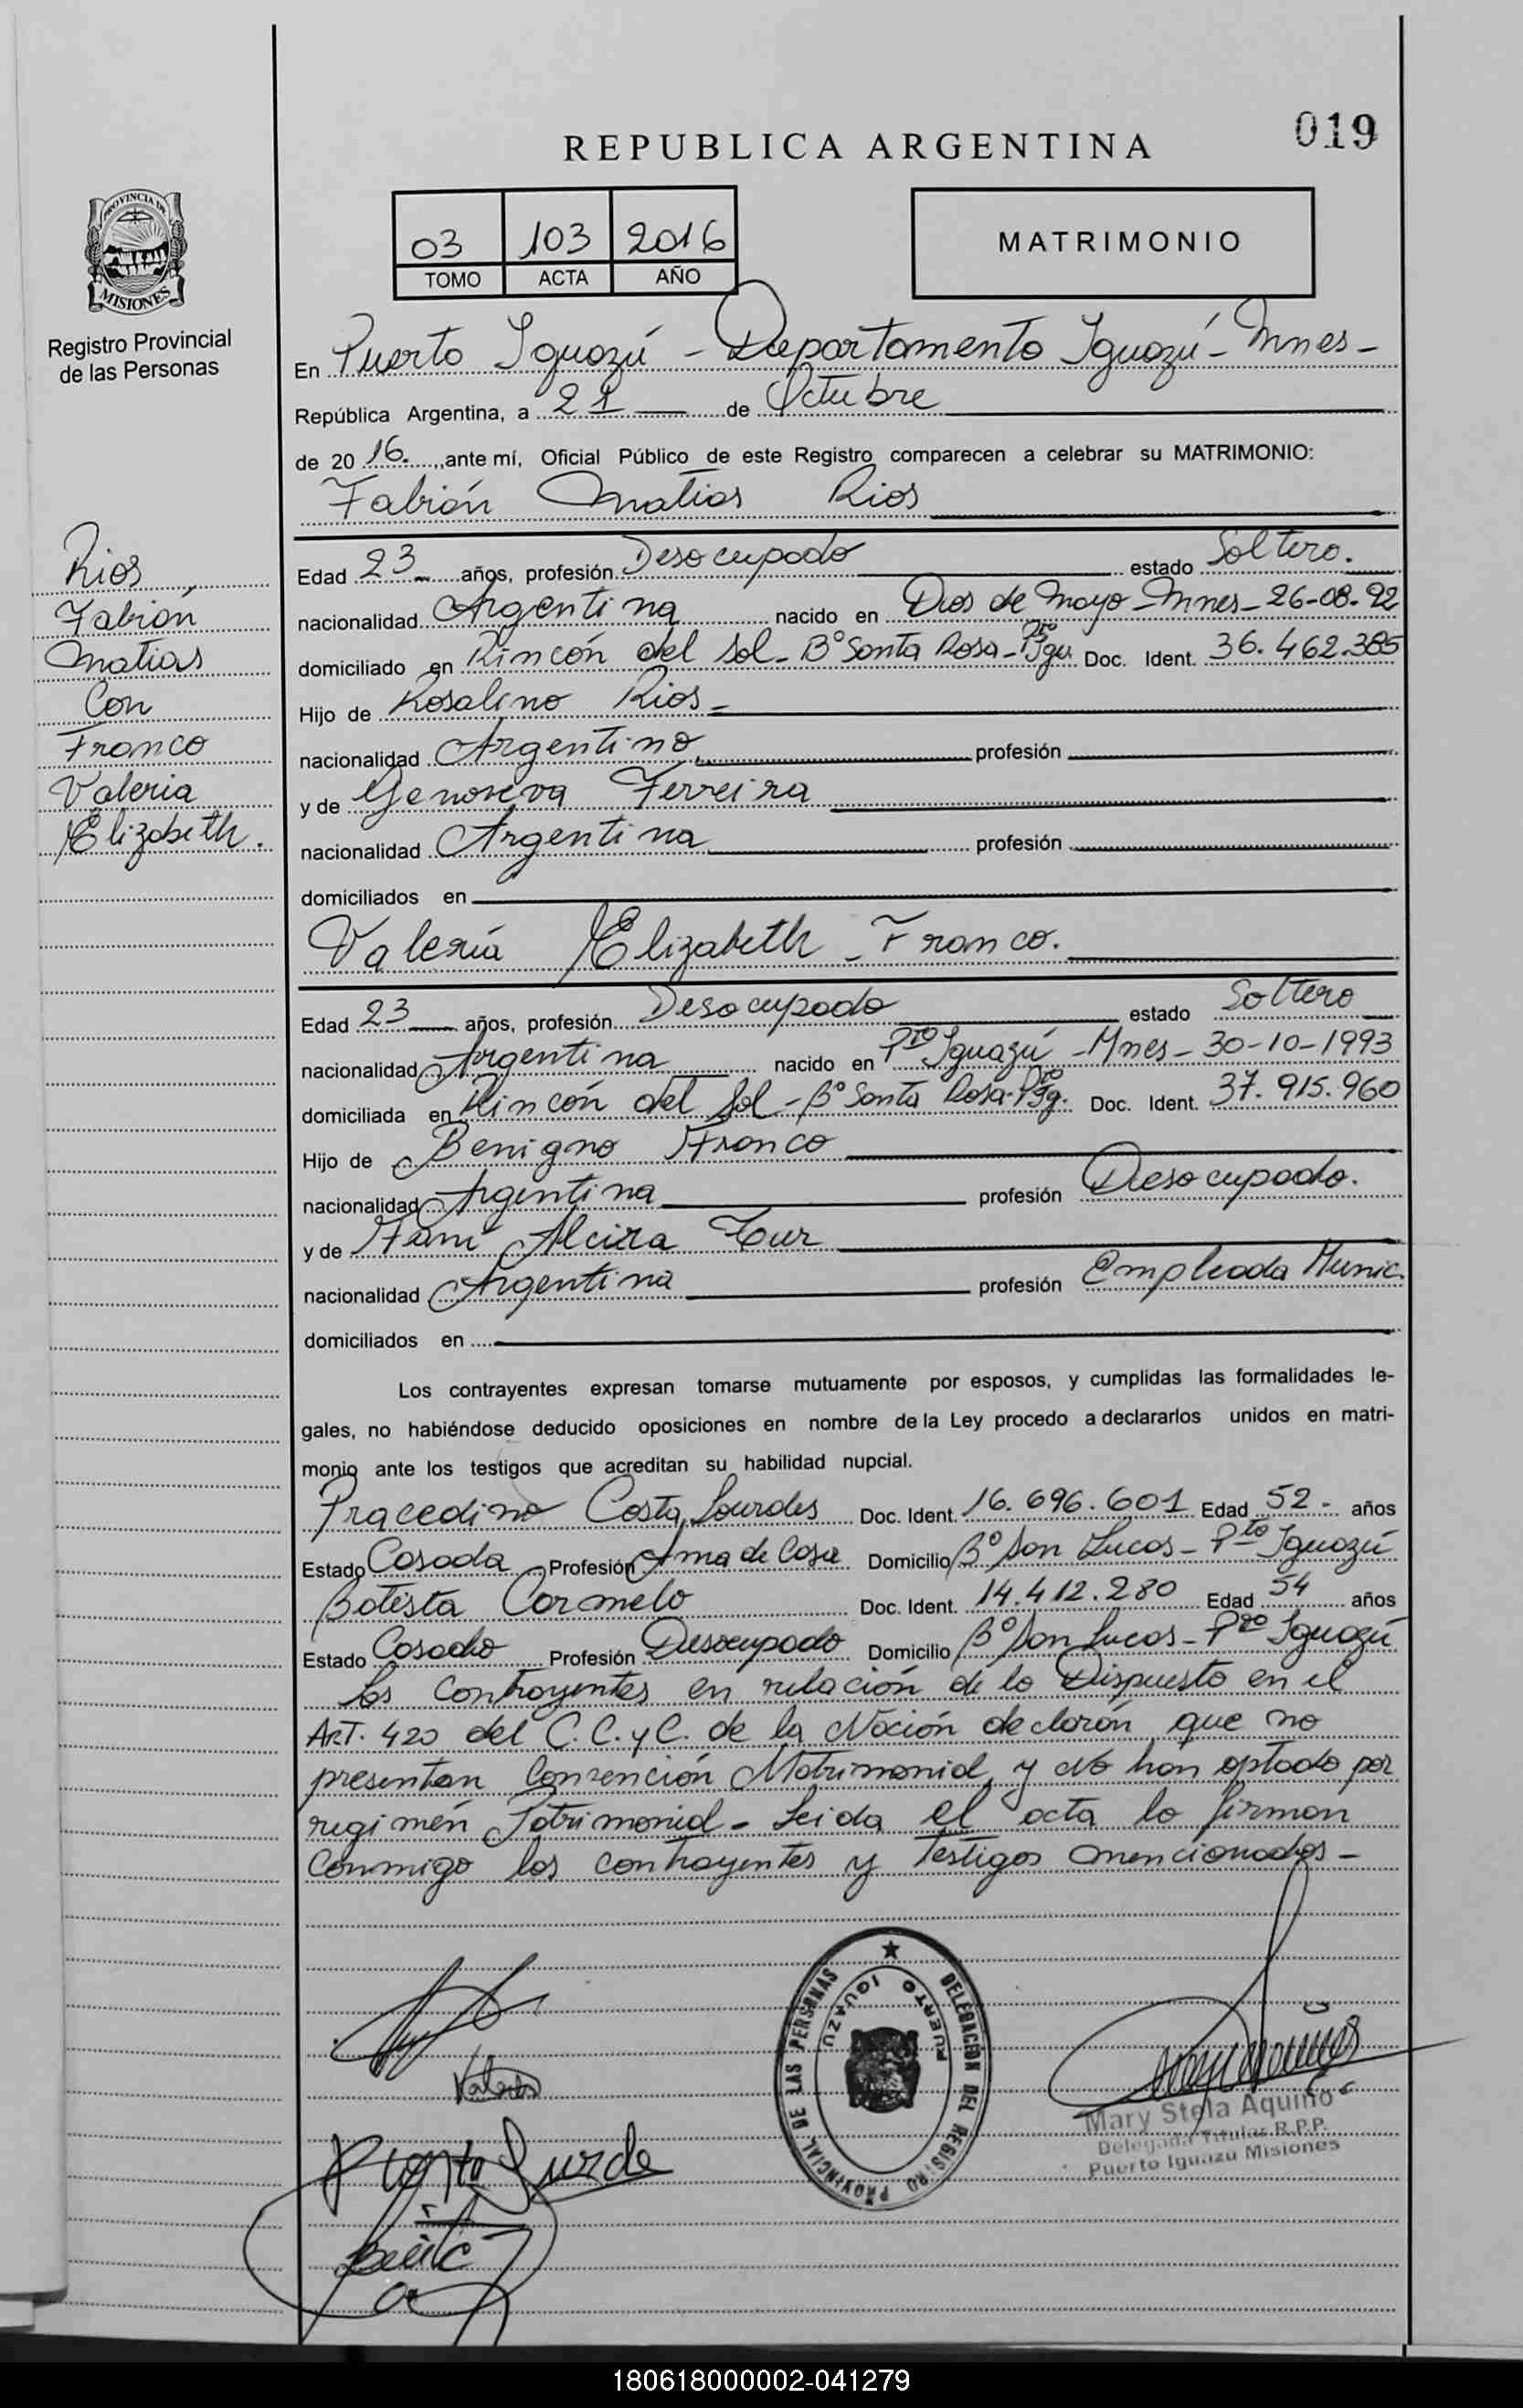 019
REPUBLICA ARGENTINA
PROVINCIA DE
MISIONES
Registro Provincial
de las Personas
03 103 2016
TOMO ACTA AÑO
MATRIMONIO
En Puerto Iguazú - Departamento Iguazú - Mnes -
República Argentina, a 21 de Octubre
de 20 16. ,ante mí, Oficial Público de este Registro comparecen a celebrar su MATRIMONIO:
Fabián Matias Rios
Rios
Fabián
Matias
Con
Franco
Valeria
Elizabeth.
Edad 23 años, profesión Desocupado estado Soltero.
nacionalidad Argentina nacido en Dos de Mayo - Mnes - 26-08-92
domiciliado en Rincón del Sol - B° Santa Rosa - Pto Igu. Doc. Ident. 36.462.385
Hijo de Rosalino Rios -
nacionalidad Argentino profesión
y de Genoveva Ferreira
nacionalidad Argentina profesión
domiciliados en
Valeria Elizabeth - Franco.
Edad 23 años, profesión Desocupado estado Soltero
nacionalidad Argentina nacido en Pto Iguazú - Mnes - 30-10-1993
domiciliada en Rincón del Sol - B° Santa Rosa - Pto Ig. Doc. Ident. 37.915.960
Hijo de Benigno Franco
nacionalidad Argentina profesión Desocupado.
y de Fani Alcira
nacionalidad Argentina profesión Empleada Munic.
domiciliados en
Los contrayentes expresan tomarse mutuamente por esposos, y cumplidas las formalidades le-
gales, no habiéndose deducido oposiciones en nombre de la Ley procedo a declararlos unidos en matri-
monio ante los testigos que acreditan su habilidad nupcial.
Pracedino Costa, Lourdes Doc. Ident. 16.696.601 Edad 52 - años
Estado Casada Profesión Ama de Casa Domicilio B° San Lucas - Pto Iguazú
Batista Carmelo Doc. Ident. 14.412.280 Edad 54 años
Estado Casado Profesión Desocupado Domicilio B° San Lucas - Pto Iguazú
Los Contrayentes en relación de lo Dispuesto en el
ART. 420 del C.C.yC. de la Nación declarán que no
presentan Convención Matrimonial, y No han optado por
regimén Patrimonial - Leida el acta lo firman
Conmigo los contrayentes y Testigos mencionados -
DELEGACIÓN DEL REGISTRO PROVINCIAL DE LAS PERSONAS
PUERTO IGUAZU
Mary Stela Aquino
Delegada Titular R.P.P.
Puerto Iguazú Misiones
180618000002-041279